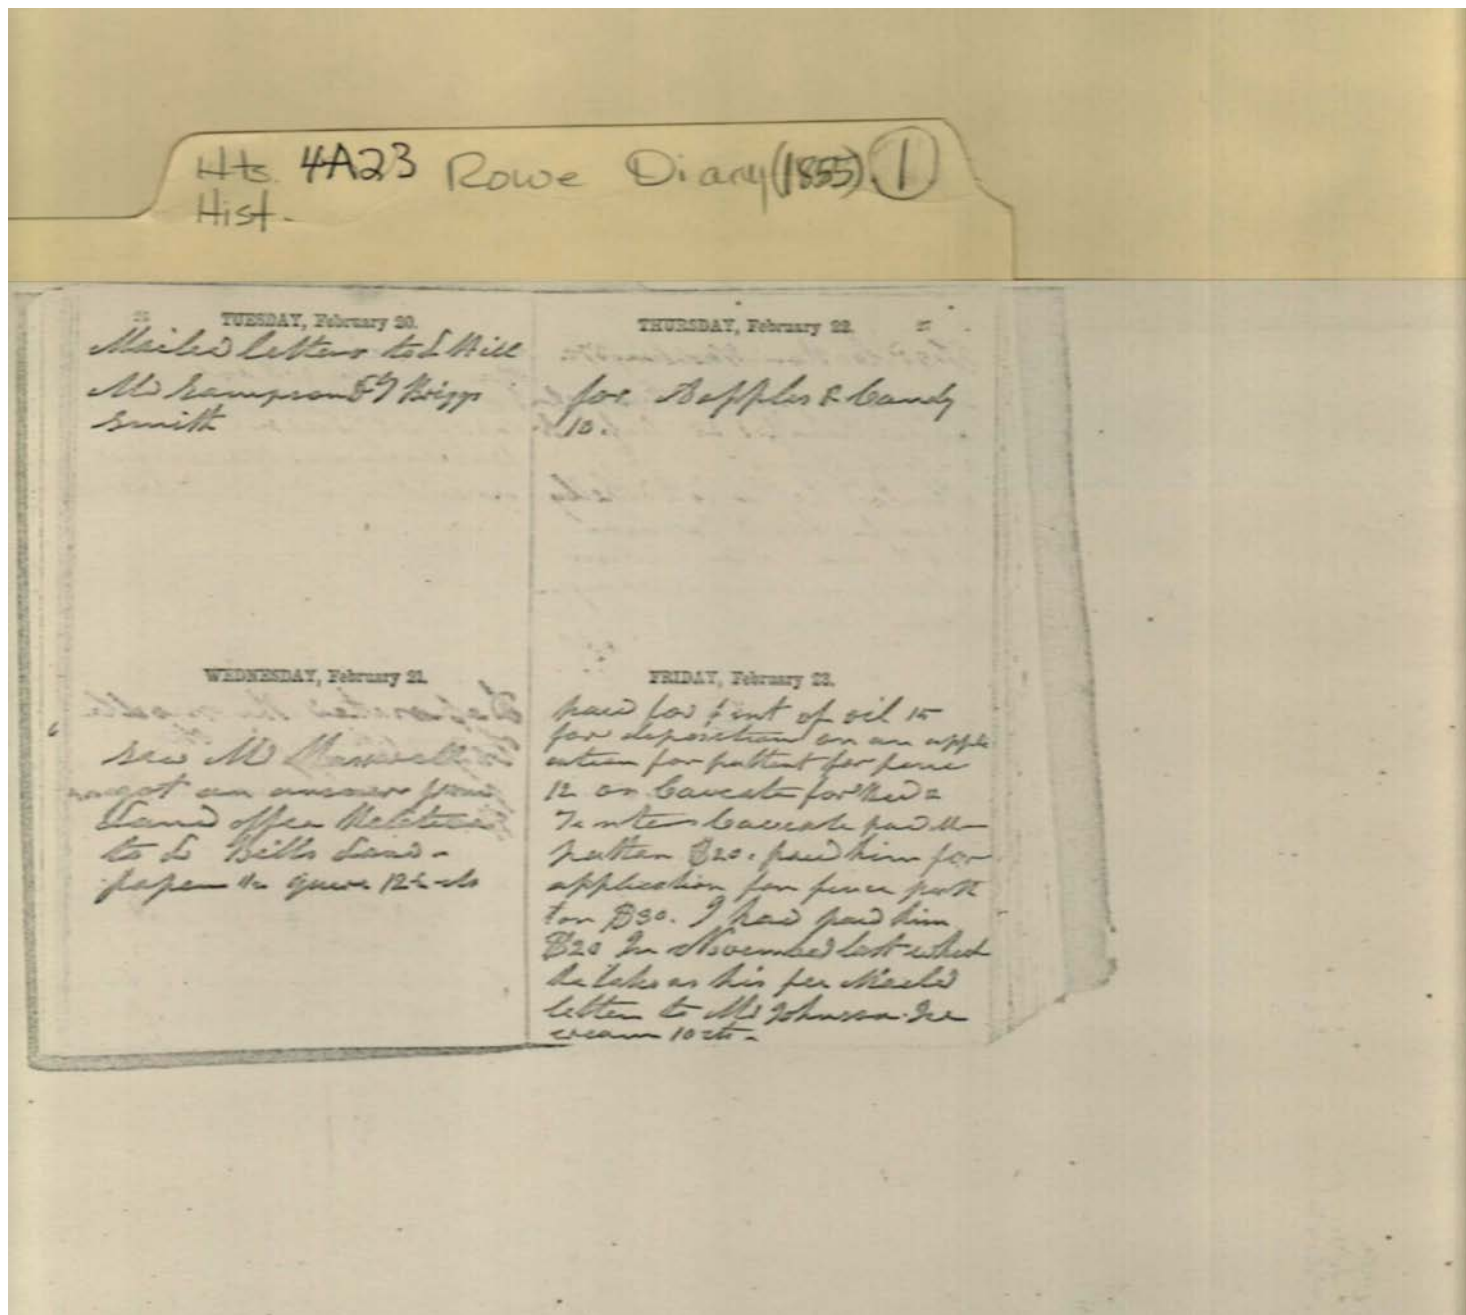 Hts. 4A23 Rowe Diary (1855) 1
Hist.
TUESDAY, February 20.
Mailed letters to L Hill
Mr Sampson & J Briggs
Smith
WEDNESDAY, February 21.
See Mr Maxwell
got an answer from
Land offce Relative
to L Hills Land -
paper 1/2 quire 12½ cts
THURSDAY, February 22.
for Aapples & Candy
10.
FRIDAY, February 23.
paid for pint of oil 15
for deposition on an appli
cation for pattent for fence
12 on Caveate for
Caveate paid
pattan $20. paid him for
application for fence patt
tan $30. I had paid him
$20 In November last which
he takes as his fee Maild
letter to Mr Johnson. Ice
cream 10 cts -